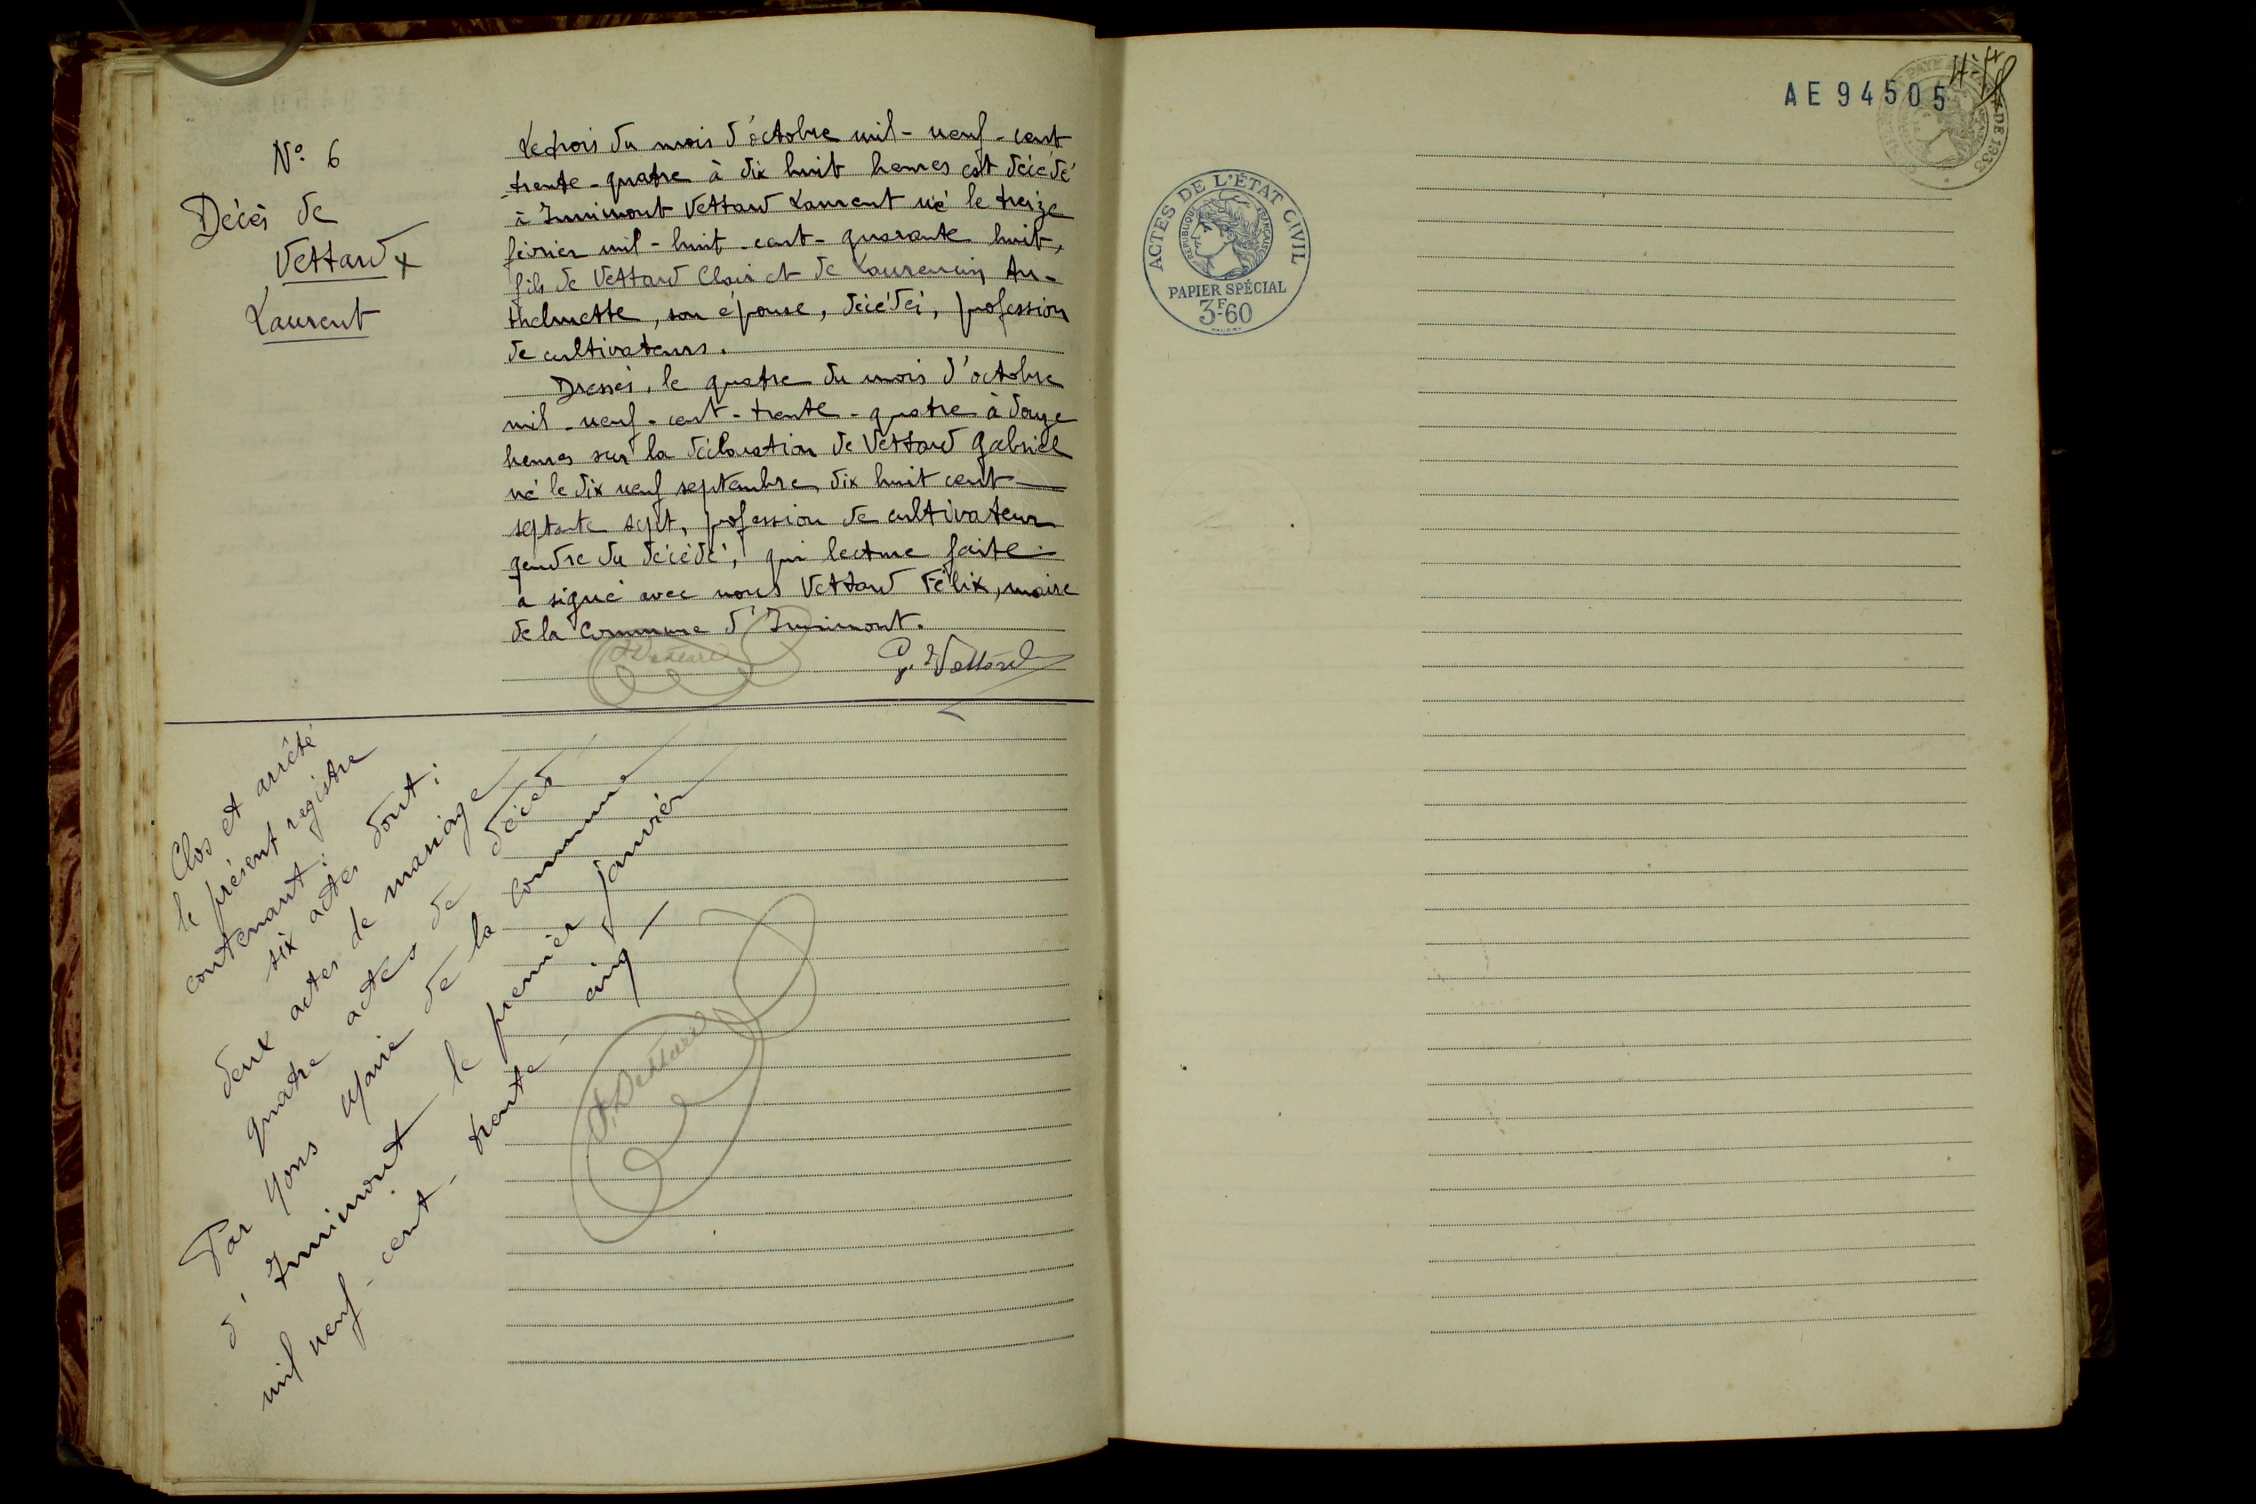 N° 6
Décès de
Vettard x
Laurent
Le trois du mois d'octobre mil-neuf-cent
trente-quatre à dix huit heures est décédé
à Innimont Vettard Laurent né le treize
février mil-huit-cent-quarante huit,
fils de Vettard Clair et de Laurencin An-
thelmette, son épouse, décédés, profession
de cultivateurs.
Dressé, le quatre du mois d'octobre
mil-neuf-cent-trente-quatre à douze
heures sur la déclaration de Vettard Gabriel
né le dix neuf septembre dix huit cent
septante sept, profession de cultivateur
gendre du décédé, qui lecture faite
a signé avec nous Vettard Félix, maire
de la Commune d'Innimont.
F. Vettard G. Vettard
Clos et arrêté
le présent registre
contenant :
six actes dont :
deux actes de mariage
quatre actes de décès
Par Nous Maire de la commune
d'Innimont le premier janvier
mil neuf-cent-trente-cinq
F. Vettard
AE 94505
ACTES DE L'ÉTAT CIVIL
RÉPUBLIQUE FRANÇAISE
PAPIER SPÉCIAL
3F.60
DE 1933